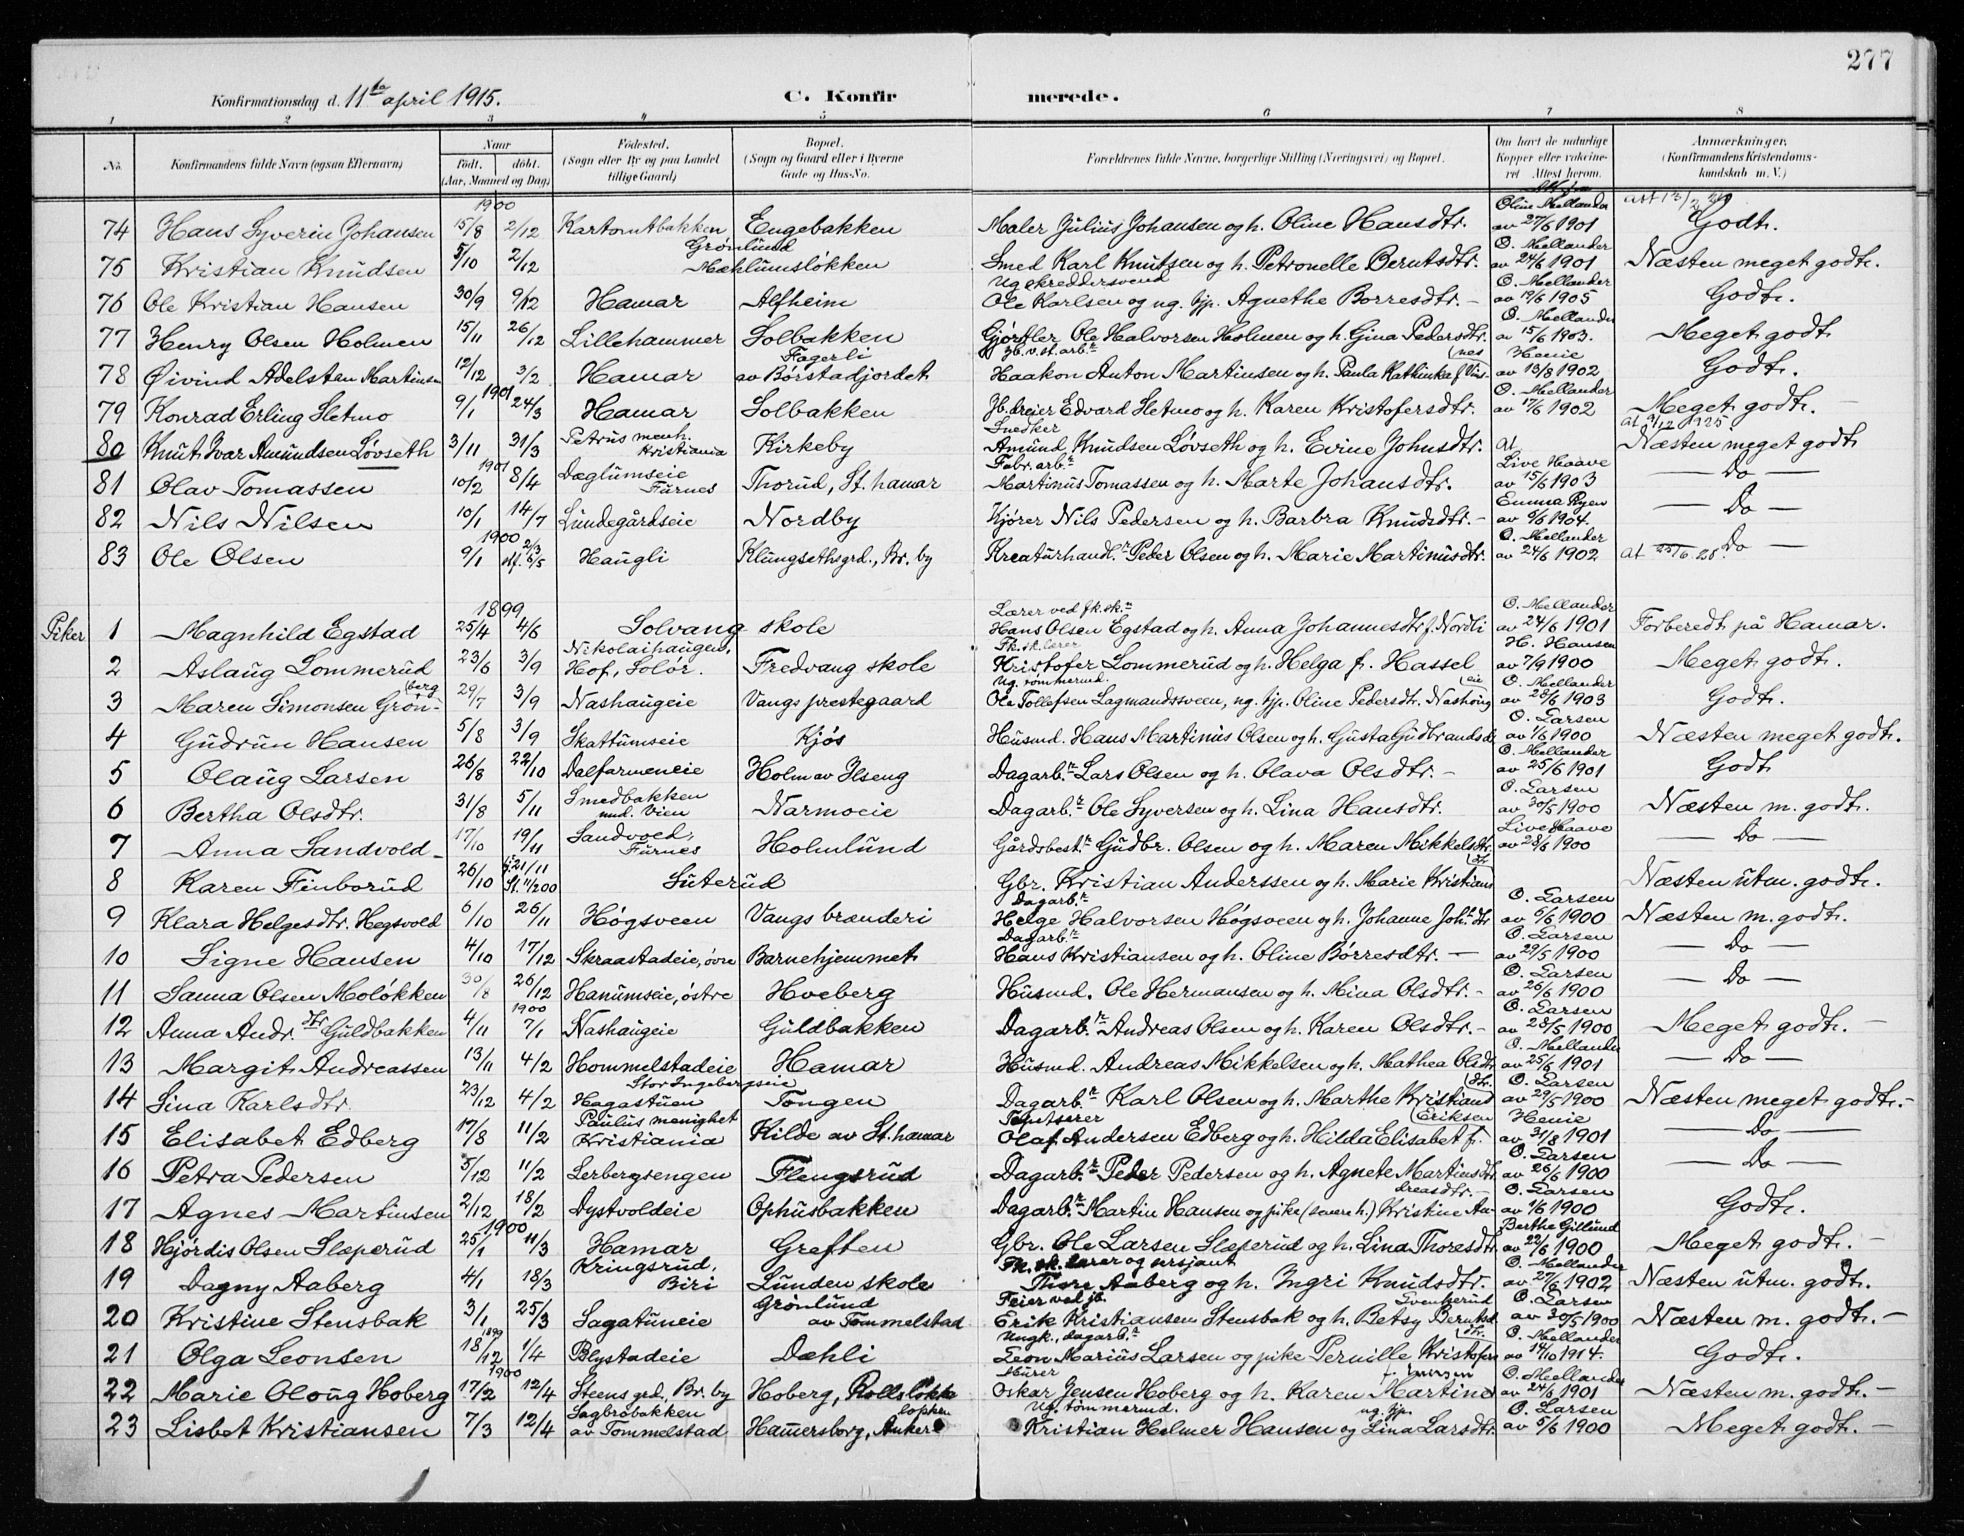 277
Konfirmationsdag d. 11te april 1915. C. Konfirmerede.
1 2 3 4 5 6 7 8
No. Konfirmandens fulde Navn (ogsaa Efternavn) Naar født. døbt. (Aar, Maaned og Dag) Fødested. (Sogn eller By og paa Landet tillige Gaard) Bopæl. (Sogn og Gaard eller i Byerne Gade og Hus-No. Forældrenes fulde Navne, borgerlige Stilling (Næringsvei) og Bopæl. Om havt de naturlige Kopper eller vakcineret. Attest herom. Anmærkninger. (Konfirmandens Kristendomskundskab m. V.)
1900
74 Hans Syverin Johansen 15/8 2/12 Kartomtbakken Engebakken Maler Julius Johansen og h. Oline Hansdtr. Oline Mellander av 27/6 1901 Godt.
75 Kristian Knudsen 5/10 2/12 Grønlund Mæhlumsløkken Smed Karl Knutsen og h. Petronelle Berntsdtr. O. Mellander av 24/6 1901 Næsten meget godt.
76 Ole Kristian Hansen 30/9 9/12 Hamar Alfheim Ug. skreddersvend Ole Karlsen og ug. tjp. Agnethe Borresdtr. - O. Mellander av 19/6 1905 Godt.
77 Henry Olsen Holmen 15/11 26/12 Lillehammer Solbakken Gjørtler Ole Halvorsen Holmen og h. Gina Pedersdtr. O. Mellander av 15/6 1903. Meget godt.
78 Øivind Adelsten Martinsen 12/12 3/2 Hamar Fagerli av Børstadjordet Jb. v. st. arb.r Haakon Anton Martinsen og h. Paula Kathinka f. Vinsnes Henie av 13/8 1902 Godt.
1901
79 Konrad Erling Sletmo 9/1 24/3 Hamar Solbakken Jb. Edvard Sletmo og h. Karen Kristofersdtr. O. Mellander av 17/6 1902 Meget godt. -
80 Knut Ivar Amundsen Løvseth 3/11 31/3 Petrus menh. Kristiania Kirkeby Snedker Amund Knudsen Løvseth og h. Evine Johnsdtr. at at 9/12 1925 Næsten meget godt
1901
81 Olav Tomassen 10/2 8/4 Dæglumseie Furnes Thorud, St. hamar Fabr. arb.r Martinus Tomassen og h. Marte Johansdtr. Live Haave av 15/6 1903 - Do -
82 Nils Nilsen 10/1 14/7 Lundegårdseie Nordby Kjører Nils Pedersen og h. Barbra Knudsdtr. - Emma Ryen av 6/6 1904. - Do -
1900
83 Ole Olsen 9/1 2/3 stf. 6/5 Haugli Klungsethsgrd., Br. by Kreaturhandl.r Peder Olsen og h. Marie Martinusdtr. O. Mellander av 24/6 1902 at 25/6 28. Do -
1899
Piker 1 Magnhild Egstad 25/4 4/6 Solvang skole Lærer ved fk. sk.n Hans Olsen Egstad og h. Anna Johannesdtr. f. Nordli O. Mellander av 24/6 1901 Forberedt på Hamar.
2 Aslaug Lommerud 23/6 3/9 Nikolaihaugen, Hof, Solør. Fredvang skole Fk. sk. lærer Kristofer Lommerud og h. Helga f. Hassel H. Hansen av 7/9 1900 Meget godt.
3 Maren Simonsen Grønberg 29/7 3/9 Nashaugeie Vangs prestegaard Ug. tømmermd. Ole Tollefsen Lagmandssveen, ug. tjp. Oline Pedersdtr. Nashougeie O. Mellander av 28/6 1903 Godt.
4 Gudrun Hansen 5/8 3/9 Skattumseie Kjøs Husmd. Hans Martinus Olsen og h. Gusta Gudbrandsdt O. Larsen av 1/6 1900 Næsten meget godt.
5 Olaug Larsen 26/8 22/10 Dalfarmeneie Holm av Ilseng Dagarb.r Lars Olsen og h. Olava Olsdtr. - O. Mellander av 25/6 1901 Godt
6 Bertha Olsdtr. 31/8 5/11 Smedbakken und. Vien Narmoeie Dagarb.r Ole Syversen og h. Lina Hansdtr. O. Larsen av 30/5 1900 Næsten m. godt.
7 Anna Sandvold - 17/10 19/11 Sandvold, Furnes Holmlund Gårdsbest.r Gudbr. Olsen og h. Maren Mikkelsdtr. Live Haave av 28/6 1900 - Do -
8 Karen Finborud 26/10 21/11 St. 11/2 00 Suterud Gbr. Kristian Anderssen og h. Marie Kristiansdtr Næsten utm. godt.
9 Klara Helgesdtr. Hegsvold 6/10 26/11 Høgsveen Vangs brænderi Dagarb.r Helge Halvorsen Høgsveen og h. Johanne Joh.s dtr O. Larsen av 6/6 1900 Næsten m. godt.
10 Signe Hansen 4/10 17/12 Skraastadeie, øvre Barnehjemmet Dagarb.r Hans Kristiansen og h. Oline Børresdtr. - O. Larsen av 29/5 1900 - Do -
11 Sanna Olsen Moløkken 30/8 26/12 Hanumseie, østre Hveberg Husmd. Ole Hermansen og h. Mina Olsdtr. - O. Larsen av 26/6 1900 - Do -
1900
12 Anna Andr.dtr Guldbakken 4/11 7/1 Nashaugeie Guldbakken Dagarb.r Andreas Olsen og h. Karen Olsdtr. - O. Larsen av 28/5 1900 Meget godt. -
13 Margit Andreassen 13/11 4/2 Hommelstadeie Hamar Husmd. Andreas Mikkelsen og h. Mathea Olsdtr O. Mellander av 25/6 1901 - Do -
14 Lina Karlsdtr. 23/12 4/2 Stor Ingebergseie Hagastuen Tongen Dagarb.r Karl Olsen og h. Marthe Kristiansdtr. O. Larsen av 29/5 1900 Næsten meget godt. -
15 Elisabet Edberg 17/8 11/2 Paulus menighet Kristiania Kilde av St. hamar Olaf Andersen Edberg og h. Hilda Elisabet f. Eriksen Henie av 31/8 1901 - Do -
16 Petra Pedersen 5/12 11/2 Lerbergsengen Flengsrud Dagarb.r Peder Pedersen og h. Agnete Martinsdtr O. Larsen av 26/6 1900 - Do -
17 Agnes Martinsen 2/12 18/2 Dystvoldeie Ophusbakken Dagarb.r Martin Hansen og pike (senere h.) Kristine Andreasdtr. - O. Larsen av 1/6 1900 Godt.
1900
18 Hjørdis Olsen Slæperud 25/1 11/3 Hamar Greften Gbr. Ole Larsen Slæperud og h. Lina Thoresdtr. Berthe Gillund av 22/6 1900 Meget godt. -
19 Dagny Aaberg 4/1 18/3 Kringsrud, Biri Lunden skole Fk. sk. lærer og sersjant Thore Aaberg og h. Ingri Knudsdtr. O. Mellander av 27/6 1902 Næsten utm. godt.
20 Kristine Stensbak 3/1 25/3 Sagatuneie Grønlund av Tommelstad Feier ved jb. Erik Kristiansen Stensbak og h. Betsy Berntsd. Svenkerud O. Larsen av 30/5 1900 Næsten m. godt. -
1899
21 Olga Leonsen 18/12 1/4 Blystadeie Dæhli Ungk., dagarb.r Leon Marius Larsen og pike Pernille Kristofersdtr. O. Mellander av 14/10 1914. Godt.
1900
22 Marie Oloug Hoberg 17/2 12/4 Steens grd, Br. by Hoberg, Rolleløkke Murer Oskar Jensen Hoberg og h. Karen Martine f. O. Mellander av 24/6 1901 Næsten m. godt. -
23 Lisbet Kristiansen 7/3 12/4 Sagbrobakken av Tommelstad Hamersborg, Ankerløkken Ug. tømmermd. Kristian Helmer Hansen og ug. tjp. Lina Larsdtr. O. Larsen av 5/6 1900 Meget godt. -